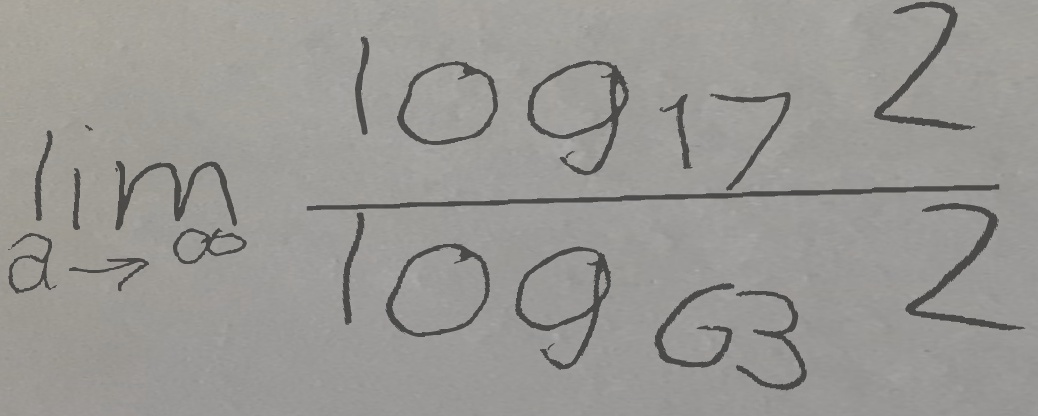 lim a→∞ log₁₇ 2 / log₆₃ 2